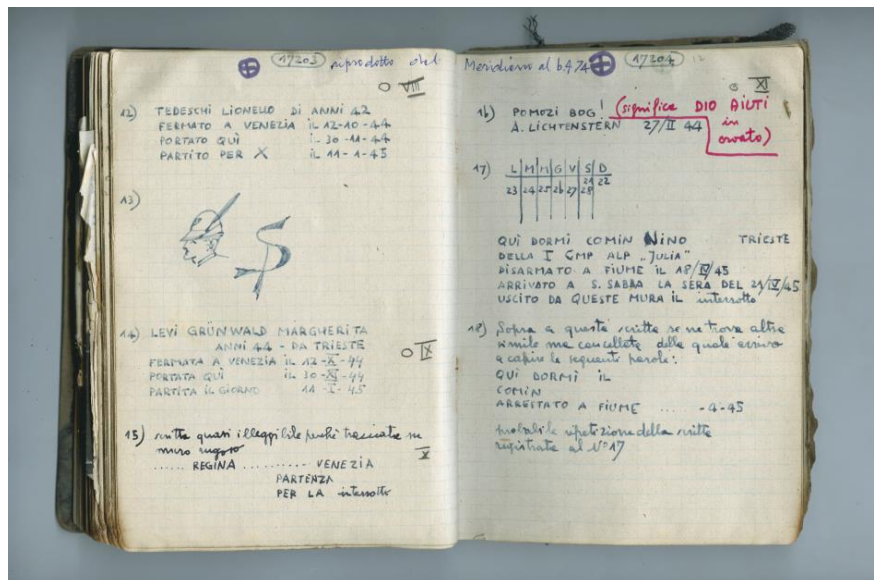 17203 riprodotto dal
O VIII
12) TEDESCHI LIONELLO DI ANNI 42
FERMATO A VENEZIA IL 12-10-44
PORTATO QUÌ IL 30-11-44
PARTITO PER X IL 11-1-45
13)
14) LEVI GRÜNWALD MARGHERITA
ANNI 44 - DA TRIESTE
O IX
FERMATA A VENEZIA IL 12-X-44
PORTATA QUÌ IL 30-XI-44
PARTITA IL GIORNO 11-I-45
15) scritta quasi illeggibile perché tracciata su
muro rugoso
X
...... REGINA .......... VENEZIA
PARTENZA
PER LA interrotto
Meridiano al 6.4.74 17204 12
O XI
16) POMOZI BOG! (significa DIO AIUTI
in
croato)
A. LICHTENSTERN 27/II 44
17) L M M G V S D
21 22
23 24 25 26 27 28
QUÌ DORMÌ COMIN NINO TRIESTE
DELLA I CMP ALP „JULIA"
DISARMATO A FIUME IL 18/IV/45
ARRIVATO A S. SABBA LA SERA DEL 21/IV/45
USCITO DA QUESTE MURA IL interrotto
18) Sopra a questa scritta se ne trova altra
simile ma cancellata della quale arrivo
a capire le seguenti parole:
QUI DORMÌ IL
COMIN
ARRESTATO A FIUME ...... -4-45
probabile ripetizione della scritta
registrata al N° 17